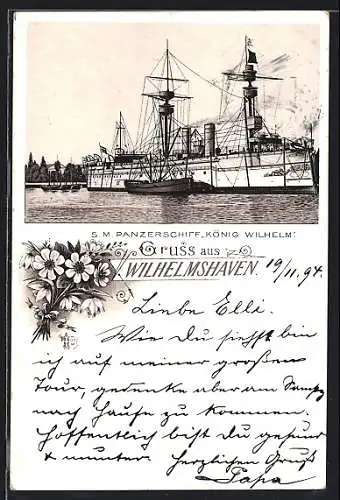 S. M. PANZERSCHIFF „KÖNIG WILHELM“.
Gruss aus
WILHELMSHAVEN.
19/11. 94.
Liebe Elli.
Wie Du siehst bin
ich auf meiner großen
Tour, gedenke aber am
nach Hause zu kommen.
Hoffentlich bist Du gesund
& munter. Herzlichen Gruß
Papa